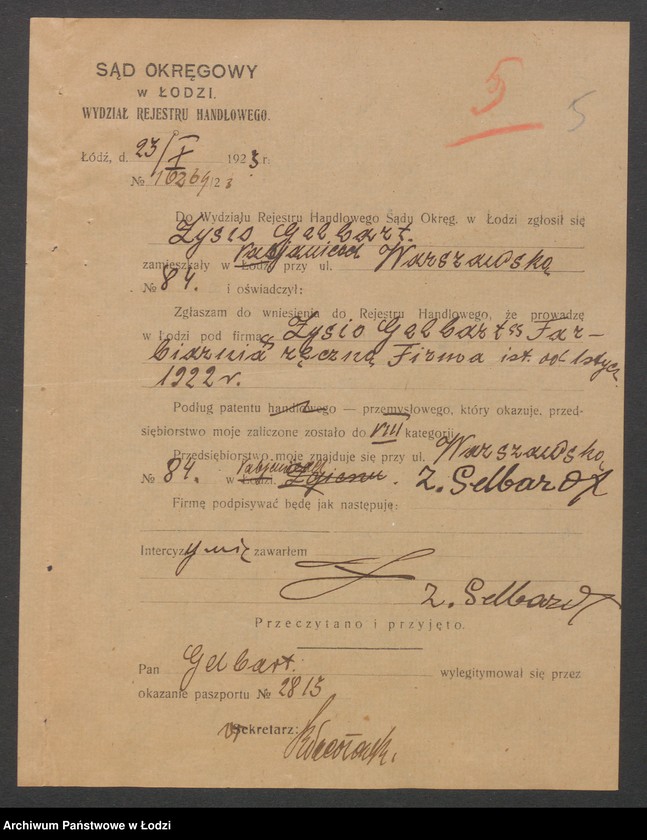 SĄD OKRĘGOWY
w ŁODZI.
WYDZIAŁ REJESTRU HANDLOWEGO.
5
5
Łódź, d. 23/X 1923 r.
№ 16269/23
Do Wydziału Rejestru Handlowego Sądu Okręg. w Łodzi zgłosił się
Zysio Gelbart.
zamieszkały w Łodzi Pabjanicach przy ul. Warszawską
№ 84. i oświadczył:
Zgłaszam do wniesienia do Rejestru Handlowego, że prowadzę
w Łodzi pod firmą „Zysio Gelbart" Far-
biarnia ręczną Firma ist. od 1 stycz.
1922 r.
Podług patentu handlowego — przemysłowego, który okazuje, przed-
siębiorstwo moje zaliczone zostało do VIII kategorji.
Przedsiębiorstwo moje znajduje się przy ul. Warszawską
№ 84. w Łodzi. Z. Gelbardt
Firmę podpisywać będę jak następuję:
Intercyzy nie zawarłem
Z. Gelbardt
Przeczytano i przyjęto.
Pan Gelbart. wylegitymował się przez
okazanie paszportu № 2813
Sekretarz:
Archiwum Państwowe w Łodzi